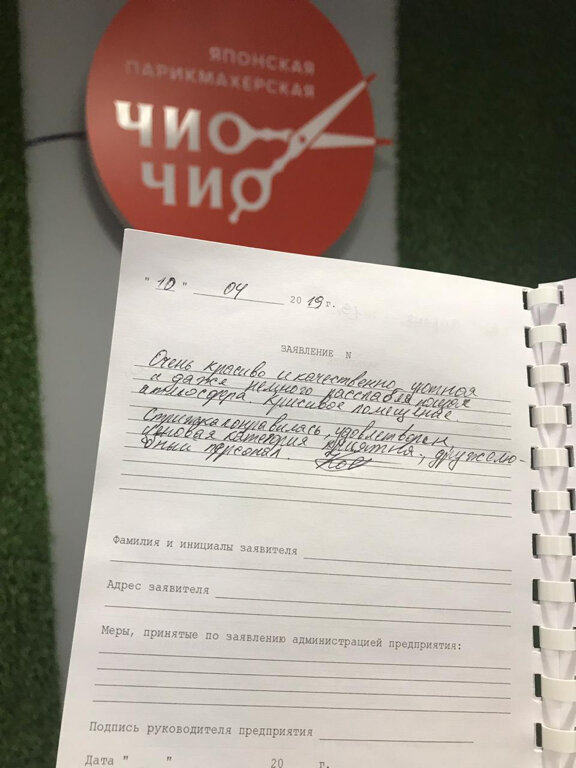 ЯПОНСКАЯ
ПАРИКМАХЕРСКАЯ
ЧИО
ЧИО
"10" 04 2019 г.
ЗАЯВЛЕНИЕ N
Очень красиво и качественно, уютная
и даже немного расслабляющая
атмосфера красивое помещение.
Стрижка понравилась, удовлетворен,
ценовая категория приятная, дружелю-
бный персонал.
Фамилия и инициалы заявителя
Адрес заявителя
Меры, принятые по заявлению администрацией предприятия:
Подпись руководителя предприятия
Дата " " 20 г.